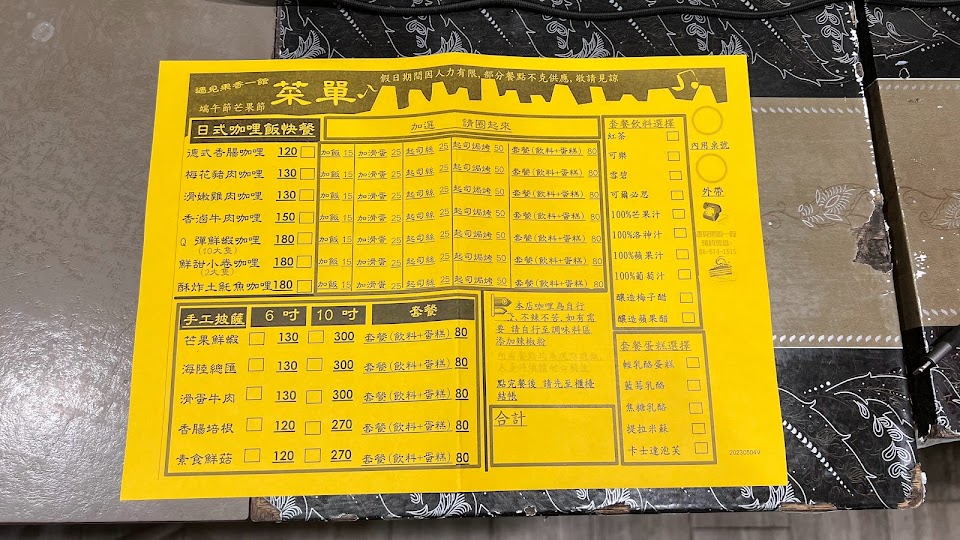 遇見果香一館
端午節芒果節
菜單
假日期間因人力有限,部分餐點不克供應,敬請見諒
日式咖哩飯快餐
加選 請圈起來
德式香腸咖哩 120 加飯 15 加滑蛋 25 起司絲 25 起司焗烤 50 套餐(飲料+蛋糕) 80
梅花豬肉咖哩 130 加飯 15 加滑蛋 25 起司絲 25 起司焗烤 50 套餐(飲料+蛋糕) 80
滑嫩雞肉咖哩 130 加飯 15 加滑蛋 25 起司絲 25 起司焗烤 50 套餐(飲料+蛋糕) 80
香滷牛肉咖哩 150 加飯 15 加滑蛋 25 起司絲 25 起司焗烤 50 套餐(飲料+蛋糕) 80
Q 彈鮮蝦咖哩 180 加飯 15 加滑蛋 25 起司絲 25 起司焗烤 50 套餐(飲料+蛋糕) 80
(10大隻)
鮮甜小卷咖哩 180 加飯 15 加滑蛋 25 起司絲 25 起司焗烤 50 套餐(飲料+蛋糕) 80
(2大隻)
酥炸土魠魚咖哩 180 加飯 15 加滑蛋 25 起司絲 25 起司焗烤 50 套餐(飲料+蛋糕) 80
手工披薩 6 吋 10 吋 套餐
芒果鮮蝦 130 300 套餐(飲料+蛋糕) 80
海陸總匯 130 300 套餐(飲料+蛋糕) 80
滑蛋牛肉 130 300 套餐(飲料+蛋糕) 80
香腸培根 120 270 套餐(飲料+蛋糕) 80
素食鮮菇 120 270 套餐(飲料+蛋糕) 80
本店咖哩為自行
不辣不苦, 如有需
要 請自行至調味料區
添加辣椒粉
點完餐後 請先至櫃檯
結帳
合計
套餐飲料選擇
紅茶
可樂
雪碧
可爾必思
100%芒果汁
100%洛神汁
100%蘋果汁
100%葡萄汁
釀造梅子醋
釀造蘋果醋
套餐蛋糕選擇
輕乳酪蛋糕
藍莓乳酪
焦糖乳酪
提拉米蘇
卡士達泡芙
內用桌號
外帶
202305049